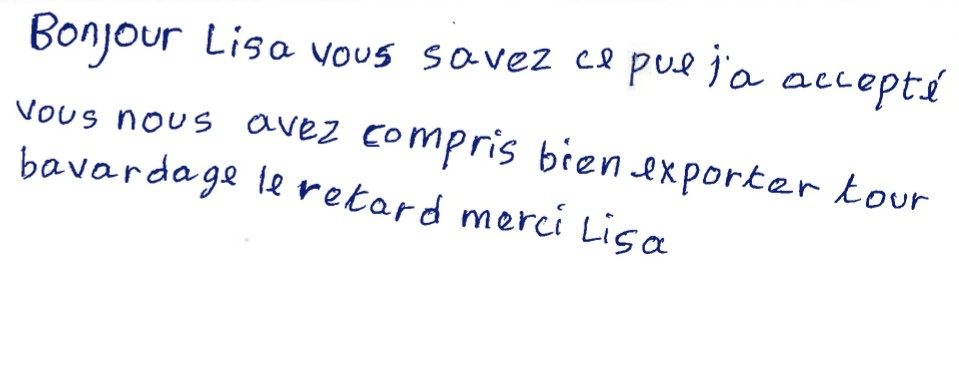 Bonjour Lisa vous savez ce pue j'a accepté
vous nous avez compris bien exporter tour
bavardage le retard merci Lisa